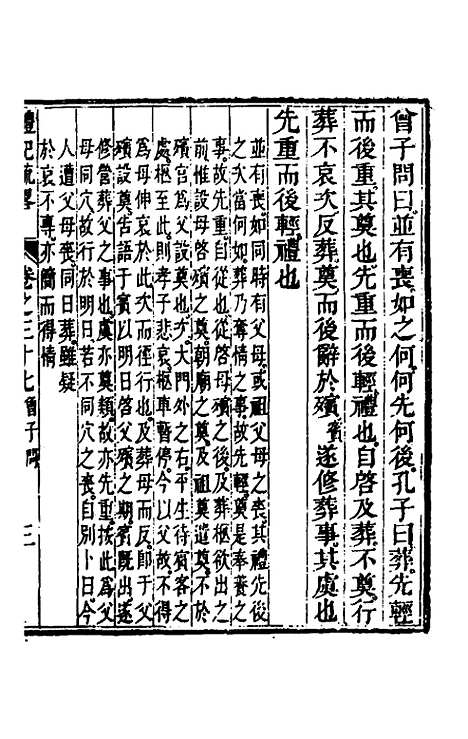 曾子問曰並有喪如之何何先何後孔子曰葬先輕
而後重其奠也先重而後輕禮也自啓及葬不奠行
葬不哀次反葬奠而後辭於殯賓遂修葬事其虞也
先重而後輕禮也
並有喪如同時有父母或祖父母之喪其禮先後
之次當何如葬乃奪情之事故先輕奠是奉養之
事故先重自從也從啓母殯之後及葬柩欲出之
前惟設母啓殯之奠朝廟之奠及祖奠遣奠不於
殯宮爲父設奠也次大門外之右平生待賓客之
處柩至此則孝子悲哀柩車暫停今以父故不得
爲母伸哀於此次而徑行也及葬母而反即于父
殯設奠告語于賓以明日啓父殯之期賓既出遂
修營葬父之事也虞亦奠類故亦先重按此爲父
母同穴故行於明日若不同穴之喪自別卜日今
人遭父母喪同日葬雖疑
於哀不專亦簡而得情
禮記疏畧 卷之三十七曾子問 三